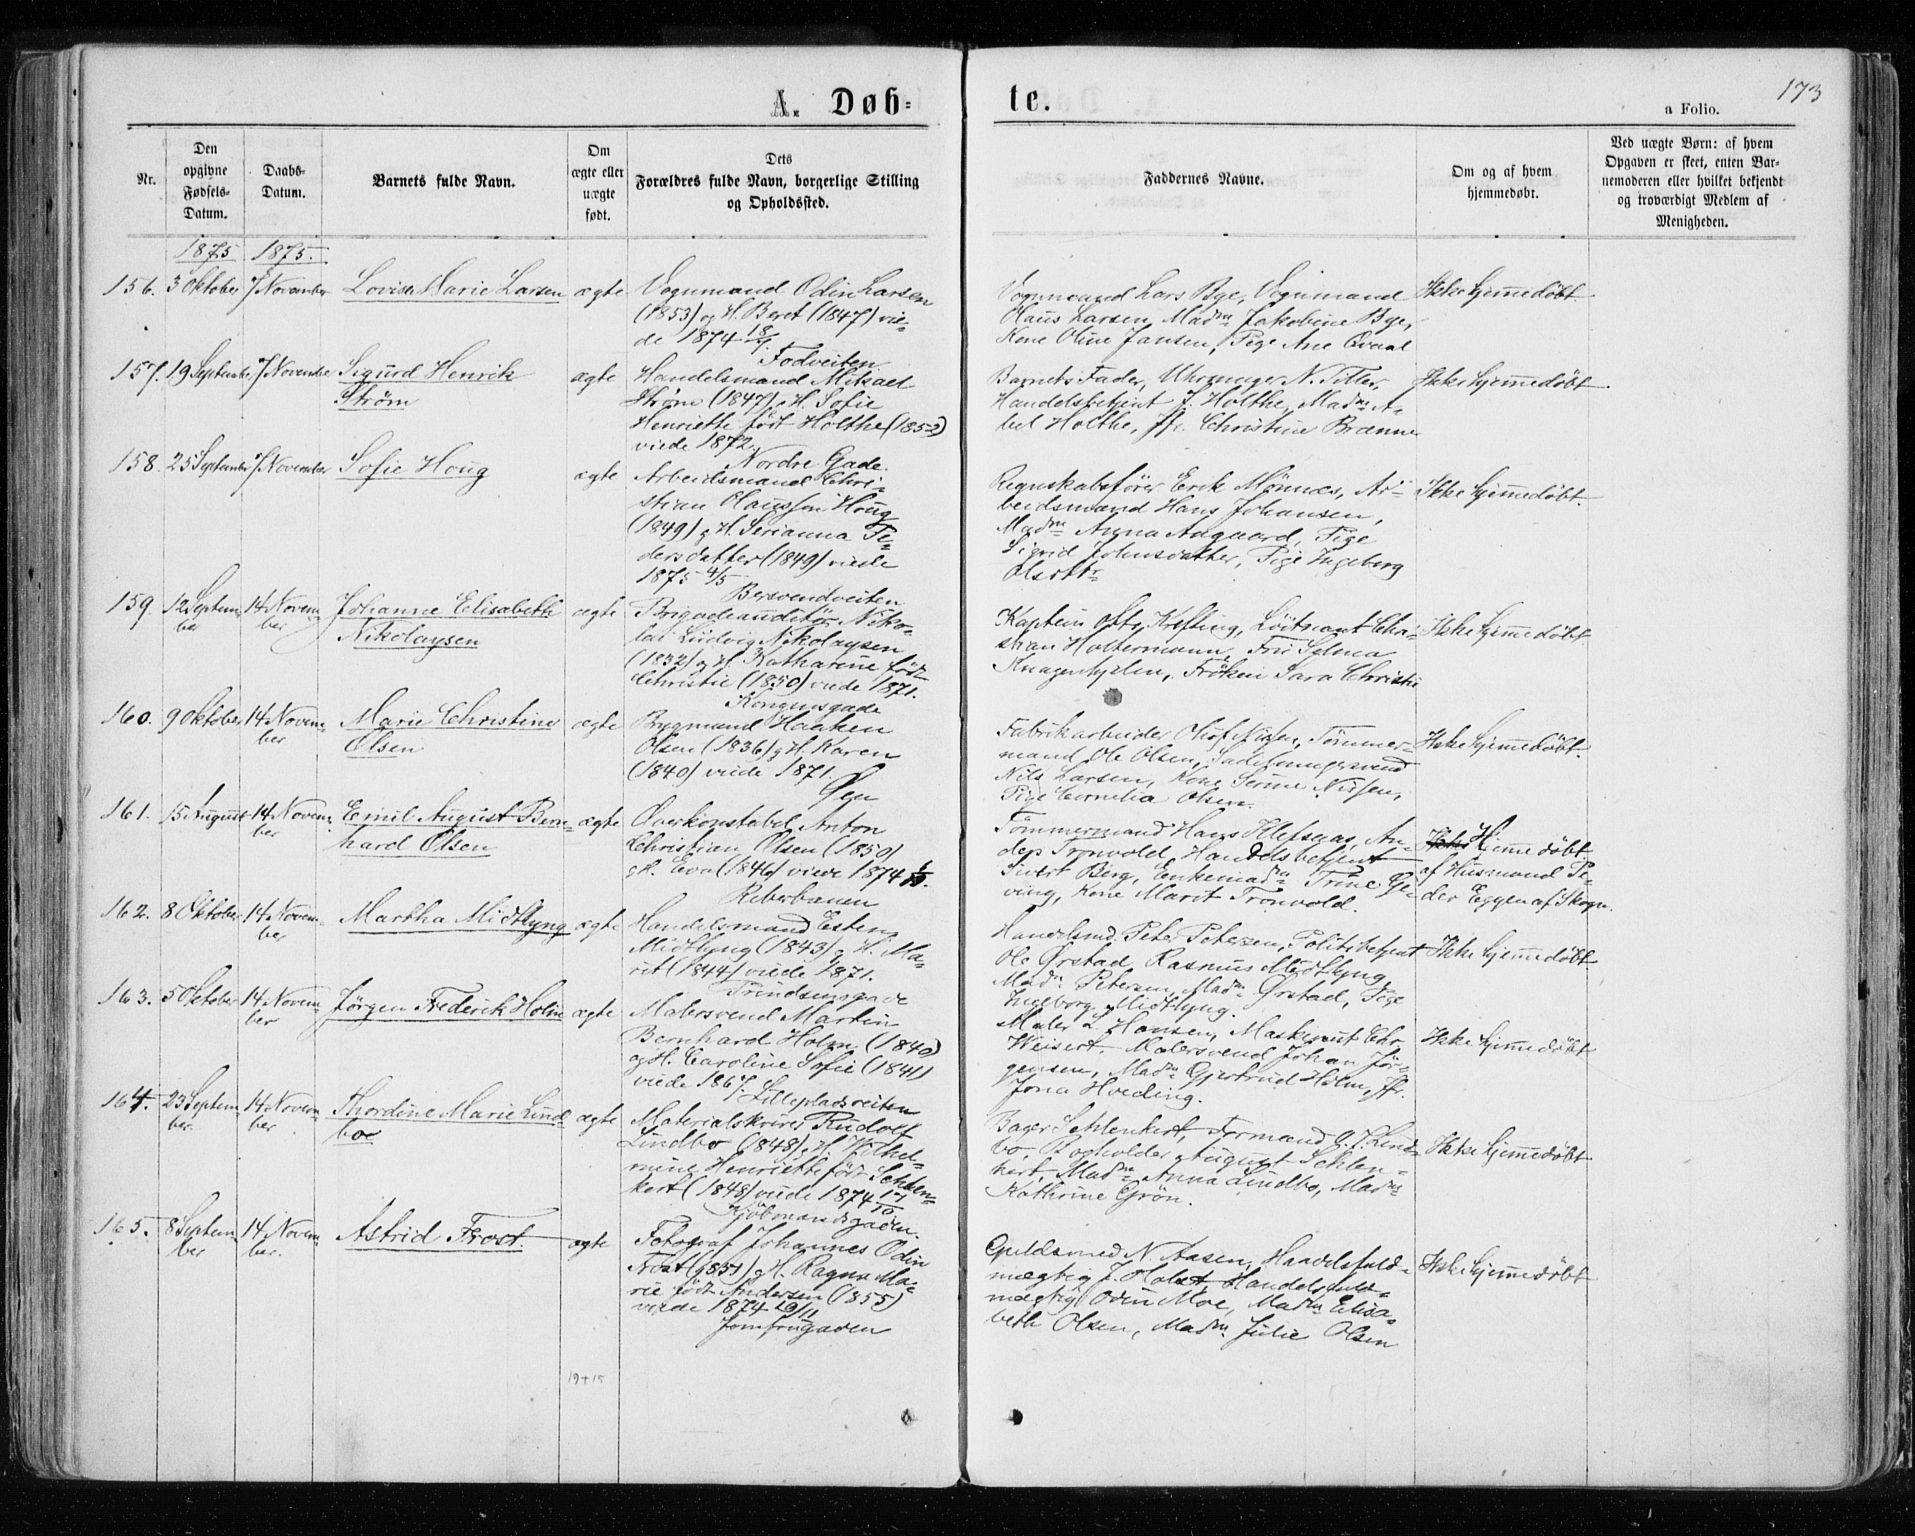 173
A. Døb= te.
a Folio.
Nr.
Den opgivne Fødsels-Datum.
Daabs-Datum.
Barnets fulde Navn.
Om ægte eller uægte født.
Dets Forældres fulde Navn, borgerlige Stilling og Opholdssted.
Faddernes Navne.
Om og af hvem hjemmedøbt.
Ved uægte Børn: af hvem Opgaven er skeet, enten Barnemoderen eller hvilket bekjendt og troværdigt Medlem af Menigheden.
1875 1875.
156. 3 Oktober 7 November Lovise Marie Larsen ægte
Vognmand Odin Larsen
(1853) og H. Beret (1847) vie-
de 1874 18/1.
Fodveiten
Vognmand Lars Bye, Vognmand
Olaus Larsen, Madm Jakobine Bye,
Kone Oline Jansen, Pige Ane Qvaal
Ikke hjemmedøbt
157. 19 September 7 November Sigurd Henrik
Strøm
ægte
Handelsmand Mikael
Strøm (1847) g H. Sofie
Henriette født Holthe (1852)
viede 1872.
Nordre Gade.
Barnets Fader, Uhrmager N. Titter,
Handelsbetjent J. Holthe, Madm A-
bel Holthe, Jfr. Christine Brænne
Ikke hjemmedøbt.
158. 25 September 7 November Sofie Houg
ægte
Arbeidsmand Chri-
stian Olaussen Houg
(1849) g H. Serianna Pe-
dersdatter (1849) viede
1875 4/5
Bersvendveiten
Regnskabsfører Erik Mønnes, Ar-
beidsmand Hans Johansen,
Madm Anna Aagaard, Pige
Sigrid Johnsdatter, Pige Ingeborg
Olsdtr
Ikke hjemmedøbt.
159. 12 Septem-
ber
14 Novem-
ber
Johanne Elisabeth
Nikolaysen
ægte
Brigadeauditør Niko-
lai Ludvig Nikolaysen
(1832) og H. Katharine født
Christie (1850) viede 1871.
Kongensgade
Kaptein Krefting, Løitnant Chri-
stian Holtermann, Fru Selma
Knagenhjelm, Frøken Sara Christie
Ikke hjemmedøbt.
160. 9 Oktober 14 Novem-
ber
Marie Christine
Olsen
ægte
Brygmand Haaken
Olsen (1836) g H. Karen
(1840) viede 1871.
Øen
Fabrikarbeider Olof Nilsen, Tømmer-
mand Ole Olsen, Sadelmagersvend
Nils Larsen, Kone Serine Nilsen,
Pige Cornelia Olsen.
Ikke hjemmedøbt.
161. 15 August 14 Novem-
ber
Emil August Bern-
hard Olsen
ægte
Overkonstabel Anton
Christian Olsen (1850)
g H. Eva (1846) viede 1874
Reberbanen
Tømmermand Hans Klefsaas, An-
ders Trønvold, Handelsbetjent
Sivert Berg, Enkemadm Trine Ge-
ving, Kone Marit Trønvold.
Ikke Hjemmedøbt
af Husmand Pe-
der Eggen af Skogn.
162. 8 Oktober 14 Novem-
ber
Martha Midtlyng ægte
Handelsmand Esten
Midtlyng (1843) g H. Ma-
rit (1844) viede 1871.
Prindsensgade
Handelsmd Peter Petersen, Politibetjent
Ole Ørstad, Rasmus Midtlyng
Madm Petersen, Madm Ørstad, Pige
Ingeborg Midtlyng.
Ikke hjemmedøbt
163. 5 Oktober 14 Novem-
ber
Jørgen Frederik Holm ægte
Malersvend Martin
Bernhard Holm (1840)
og H. Caroline Sofie (1841)
viede 1867.
Lillepladsveiten
Maler L. Hansen, Maskinist Chr.
Weisert, Malersvend Johan Jør-
gensen, Madm Gjertrud Holm, Jfr.
Jona Hveding.
Ikke hjemmedøbt
164. 23 Septem-
ber.
14 Novem-
ber
Thordine Marie Lind-
boe
ægte
Materialskriver Rudolf
Lindbo (1848) g H. Wilhel-
mine Henriette født Schlen-
kert (1848) viede 1874 17/10.
Kjøbmandsgaden.
Bager Schlenkert, Formand O. J. Lind-
bo, Bogholder August Schlen-
kert, Madm Anna Lindbo, Madm
Kathrine Grøn.
Ikke hjemmedøbt
165. 8 Septem-
ber
14 Novem-
ber.
Astrid Frost.
ægte
Fotograf Johannes Odin
Frost (1851) g H. Ragna Ma-
rie født Andersen (1855)
viede 1874 20/11
Jomfrugaden
Guldsmed N. Aasen, Handelsfuld-
mægtig J. Holst, Handelsfuld-
mægtig Odin Moe, Madm Elisa-
beth Olsen, Madm Julie Olsen
Ikke hjemmedøbt
19+15